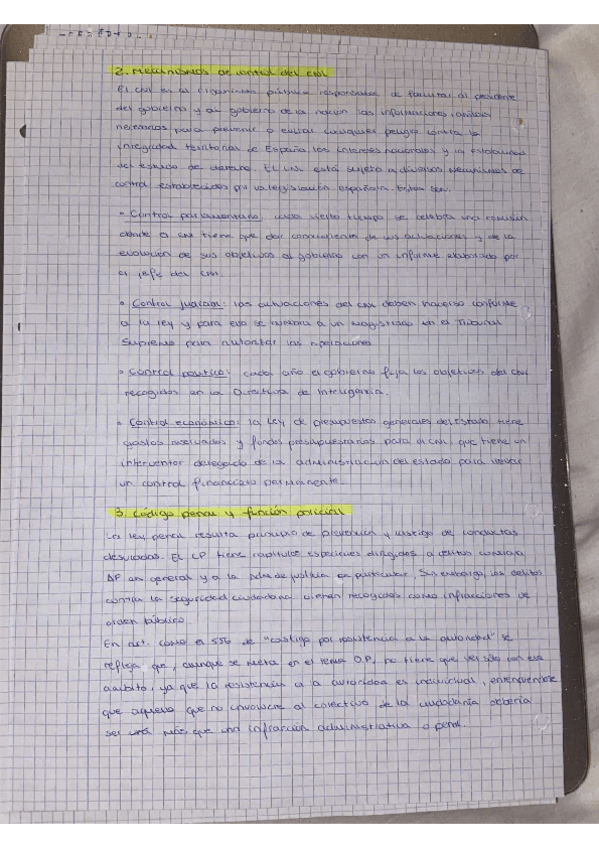 2. Mecanismos de control del CNI
El CNI es el organismo público responsable de facilitar al presidente
del gobierno y al gobierno de la nación las informaciones, análisis
necesarios para prevenir o evitar cualquier peligro contra la
integridad territorial de España, los intereses nacionales y la estabilidad
del estado de derecho. El CNI está sujeto a diversos mecanismos de
control establecidos por la legislación española. Estos son:
• Control parlamentario: cada cierto tiempo se celebra una comisión
donde el CNI tiene que dar conocimiento de sus actuaciones y de la
evolución de sus objetivos al gobierno con un informe elaborado por
el jefe del CNI.
• Control judicial: las actuaciones del CNI deben hacerse conforme
a la ley y para eso se nombra a un magistrado en el Tribunal
Supremo para autorizar las operaciones
• Control político: cada año el gobierno fija los objetivos del CNI
recogidos en la Directiva de Inteligencia.
• Control económico: la ley de presupuestos generales del Estado tiene
gastos reservados y fondos presupuestarios para el CNI, que tiene un
interventor delegado de la administración del estado para llevar
un control financiero permanente.
3. Código penal y función policial
La ley penal resulta de prevención y castigo de conductas
desviadas. El CP tiene capítulos especiales dirigidos a delitos contra la
AP en general y a la Adm. de justicia en particular. Sin embargo, los delitos
contra la seguridad ciudadana vienen recogidos como infracciones de
orden público.
En art. como el 556 de "castigo por resistencia a la autoridad" se
refleja que, aunque se meta en el tema O.P, no tiene que ver sólo con ese
ámbito, ya que la resistencia a la autoridad es individual, entendiéndose
que aquello que no involucre al colectivo de la ciudadanía debería
ser nada más que una infracción administrativa o penal.